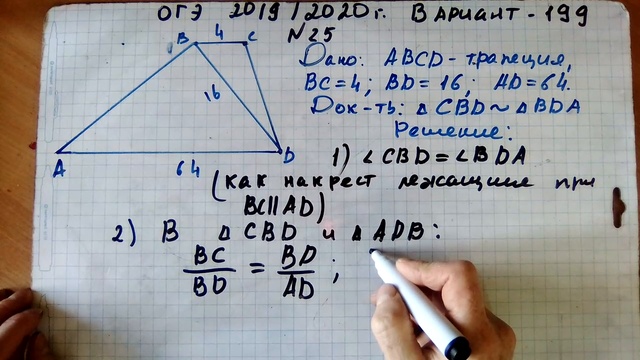 ОГЭ 2019/2020г. Вариант-199
N25
B 4 C
16
A 64 D
Дано: ABCD-трапеция,
BC=4; BD=16; AD=64.
Док-ть: △CBD~△BDA
Решение:
1) ∠CBD=∠BDA
(как накрест лежащие при
BC||AD)
2) В △CBD и △ADB:
BC/BD = BD/AD;